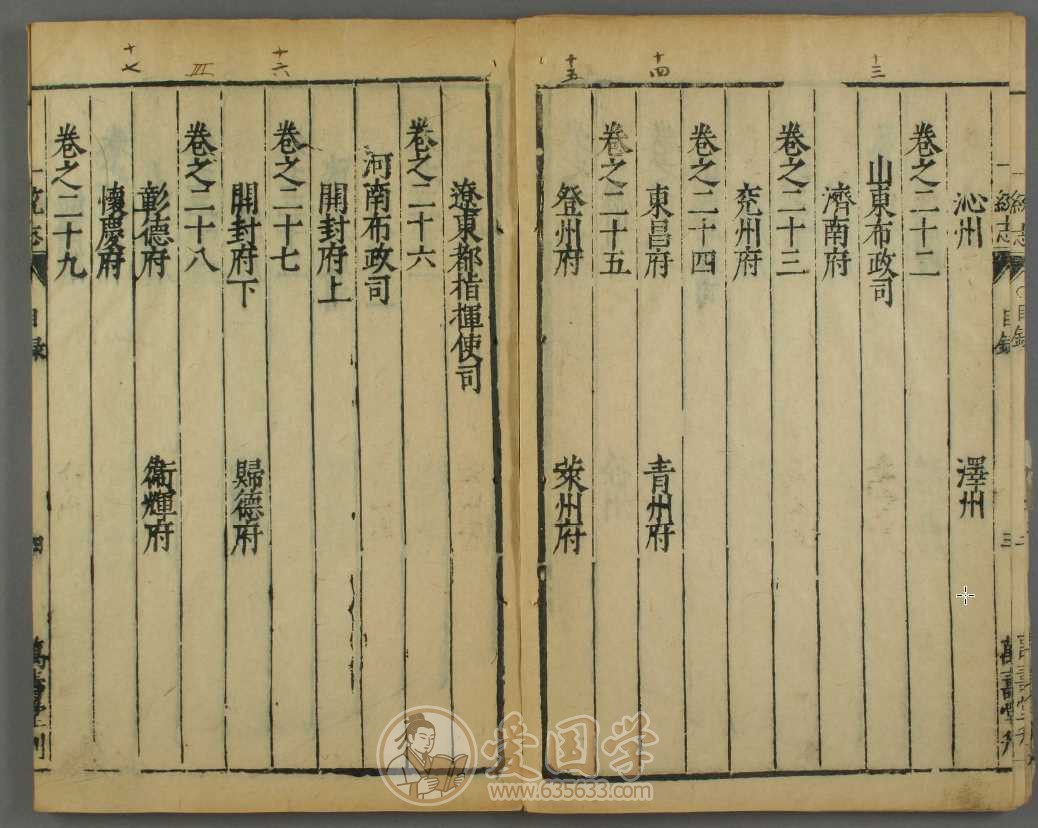 十三
十四
十五
沁州 澤州
卷之二十二
山東布政司
濟南府
卷之二十三
兖州府
卷之二十四
東昌府 青州府
卷之二十五
登州府 萊州府
一統志
目錄
三
萬壽堂刊
十六
十七
遼東都指揮使司
卷之二十六
河南布政司
開封府上
卷之二十七
開封府下 歸德府
卷之二十八
彰德府 衞輝府
懷慶府
卷之二十九
一統志
目錄
四
萬壽堂刊
爱国学
www.635633.com